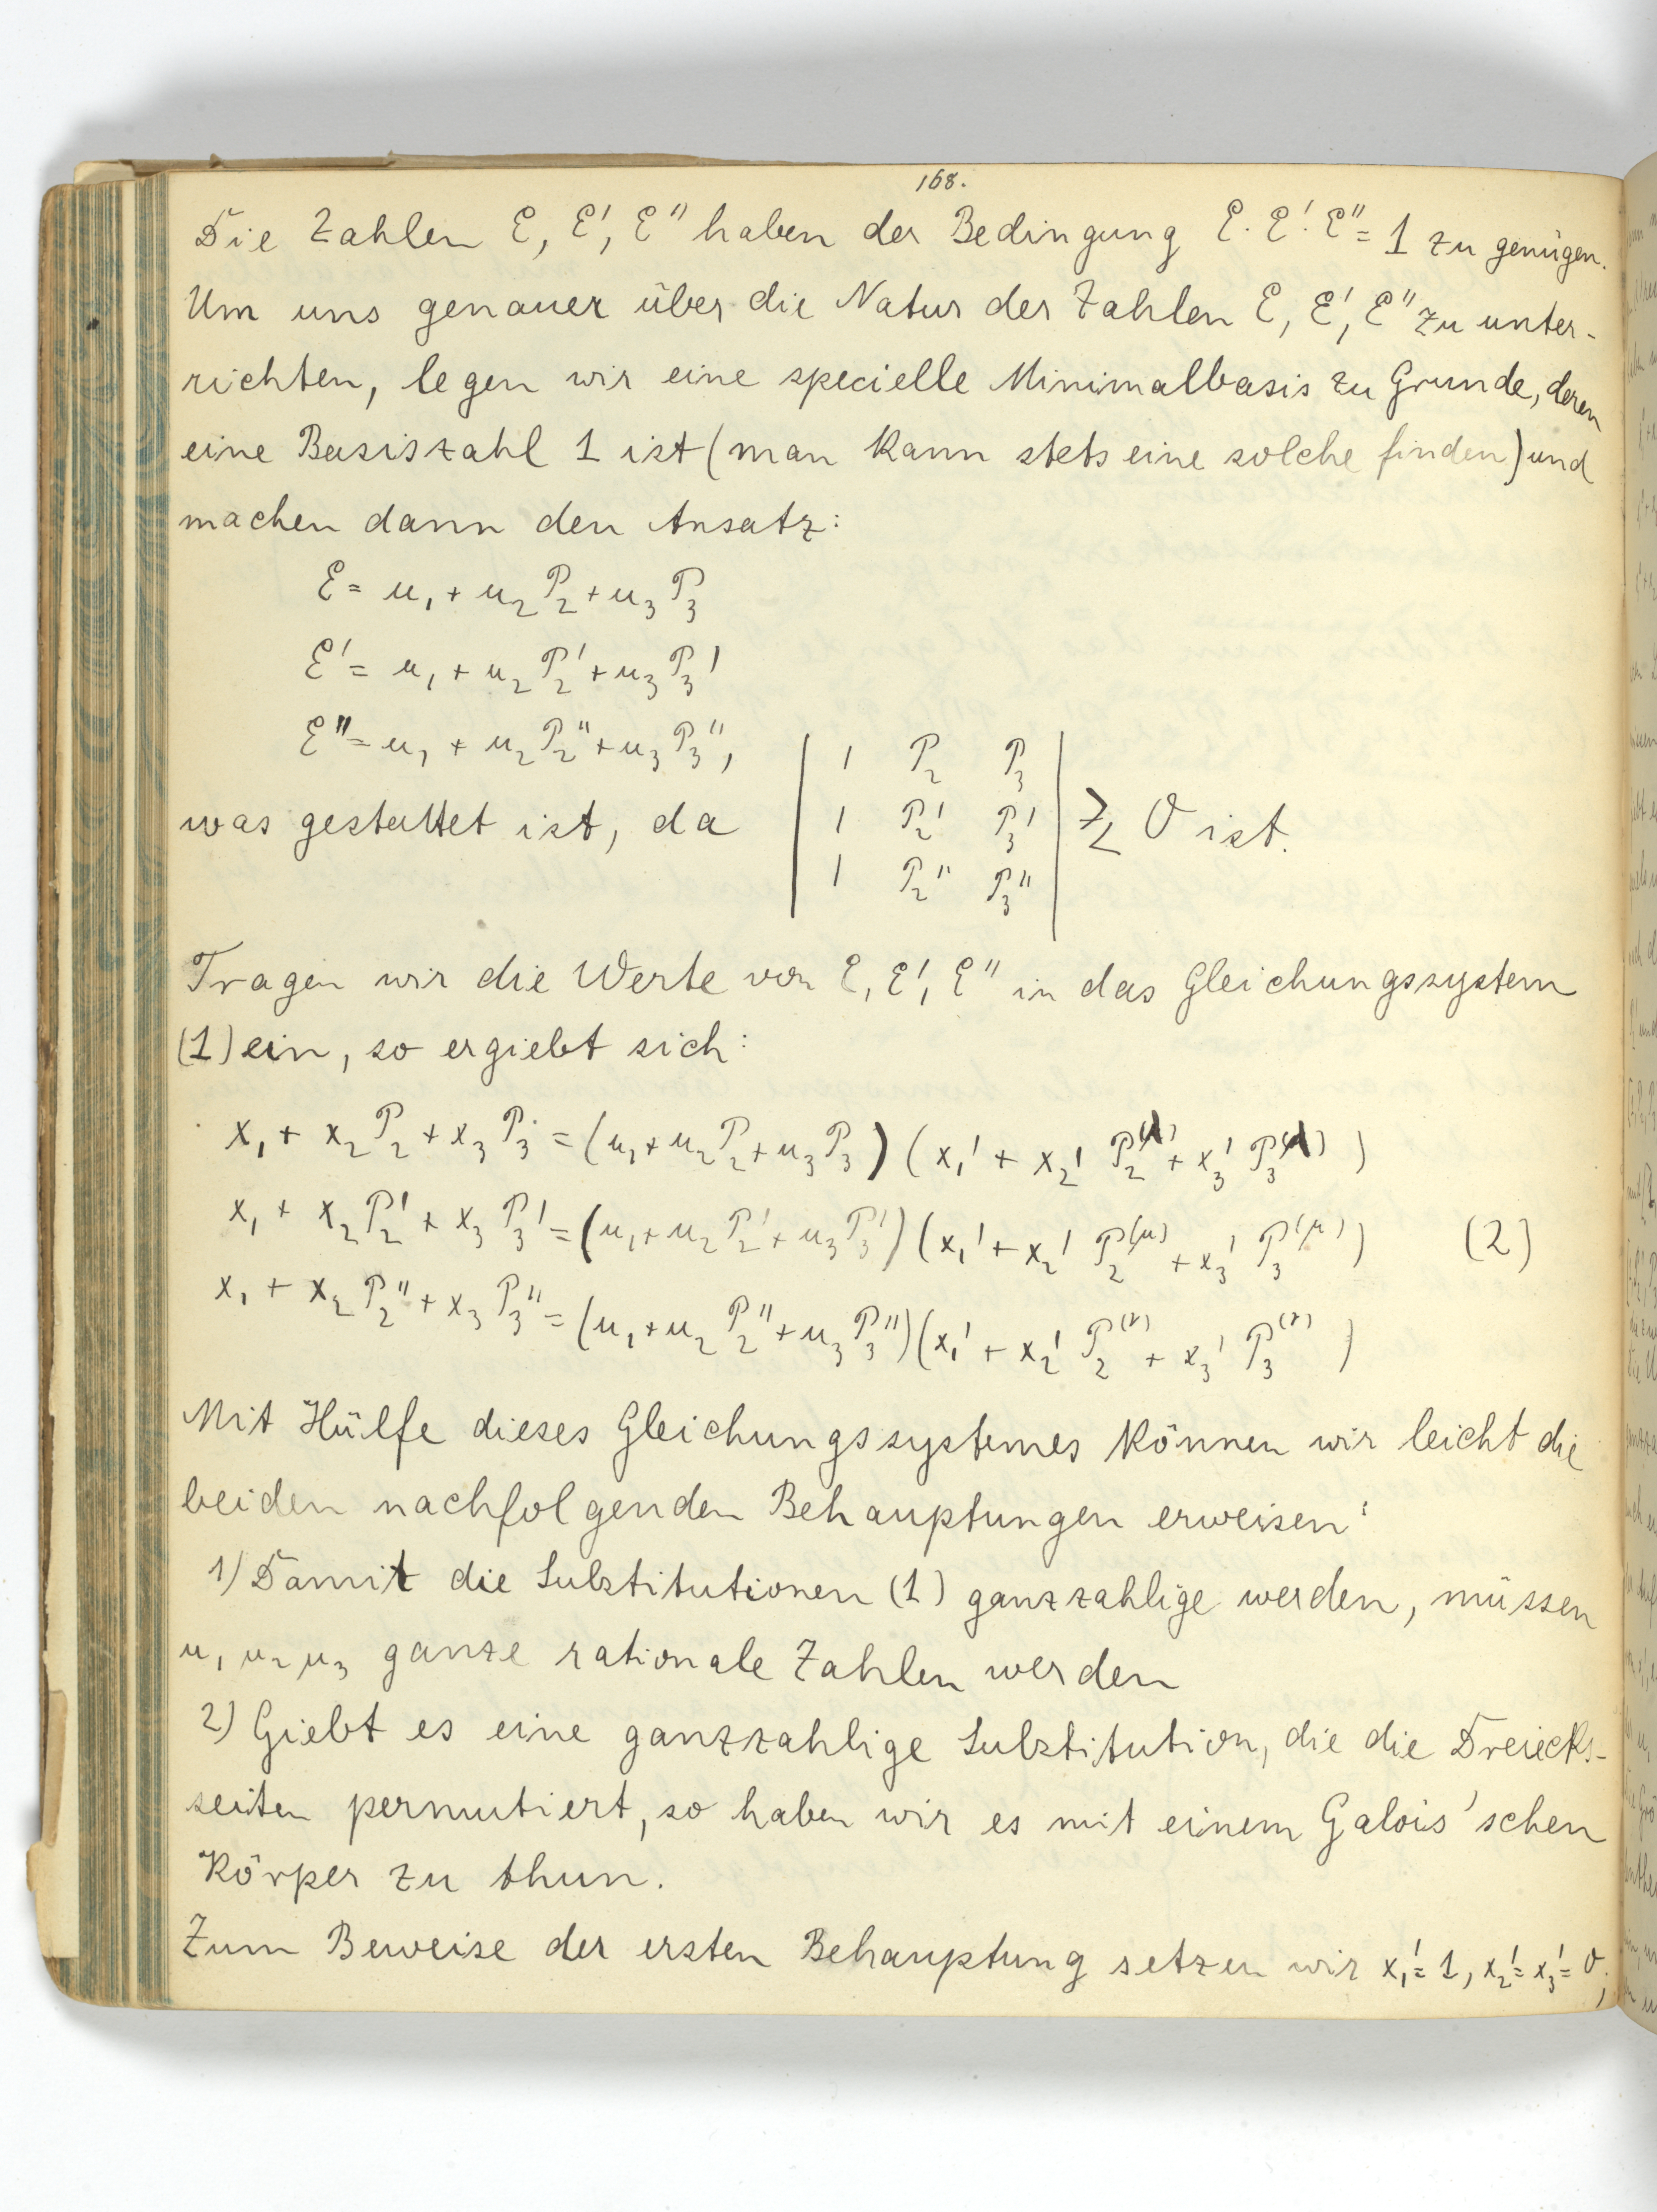 168.
Die Zahlen ℰ, ℰ', ℰ'' haben der Bedingung ℰ·ℰ'·ℰ'' = 1 zu genügen.
Um uns genauer über die Natur der Zahlen ℰ, ℰ', ℰ'' zu unter-
richten, legen wir eine specielle Minimalbasis zu Grunde, deren
eine Basiszahl 1 ist (man kann stets eine solche finden) und
machen dann den Ansatz:
ℰ = u₁ + u₂ P₂ + u₃ P₃
ℰ' = u₁ + u₂ P₂' + u₃ P₃'
ℰ'' = u₁ + u₂ P₂'' + u₃ P₃'',
| 1 P₂ P₃ |
was gestattet ist, da | 1 P₂' P₃' | ≷ 0 ist.
| 1 P₂'' P₃'' |
Tragen wir die Werte von ℰ, ℰ', ℰ'' in das Gleichungssystem
(1) ein, so ergiebt sich:
x₁ + x₂ P₂ + x₃ P₃ = (u₁ + u₂ P₂ + u₃ P₃) (x₁' + x₂' P₂^(λ) + x₃' P₃^(λ))
x₁ + x₂ P₂' + x₃ P₃' = (u₁ + u₂ P₂' + u₃ P₃') (x₁' + x₂' P₂^(μ) + x₃' P₃^(μ)) (2)
x₁ + x₂ P₂'' + x₃ P₃'' = (u₁ + u₂ P₂'' + u₃ P₃'') (x₁' + x₂' P₂^(ν) + x₃' P₃^(ν))
Mit Hülfe dieses Gleichungssystemes können wir leicht die
beiden nachfolgenden Behauptungen erweisen:
1) Damit die Substitutionen (1) ganzzahlige werden, müssen
u₁ u₂ u₃ ganze rationale Zahlen werden
2) Giebt es eine ganzzahlige Substitution, die die Dreiecks-
seiten permutiert, so haben wir es mit einem Galois'schen
Körper zu thun.
Zum Beweise der ersten Behauptung setzen wir x₁' = 1, x₂' = x₃' = 0;